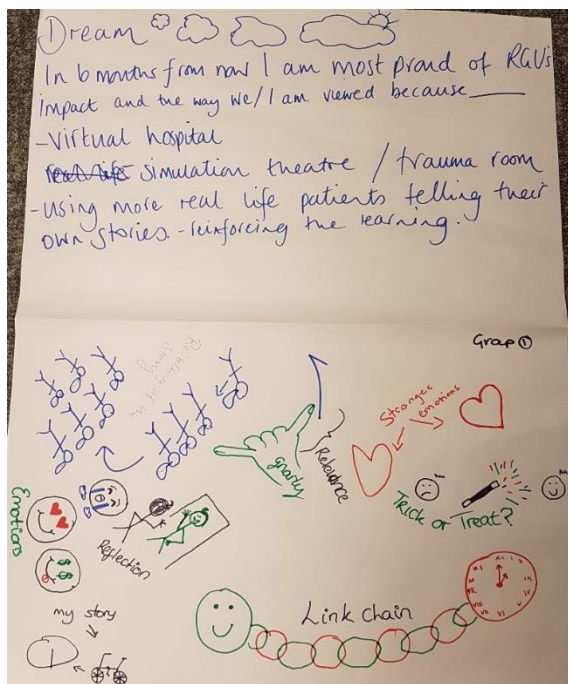 Dream
In 6 months from now I am most proud of RGU's
impact and the way we/I am viewed because
-Virtual hospital
real life simulation theatre / trauma room
-Using more real life patients telling their
own stories - reinforcing the learning.
Group 1
Stronger
emotions
gnarly
Relevance
Trick or Treat?
Emoticons
$ $
Reflection
my story
Link chain